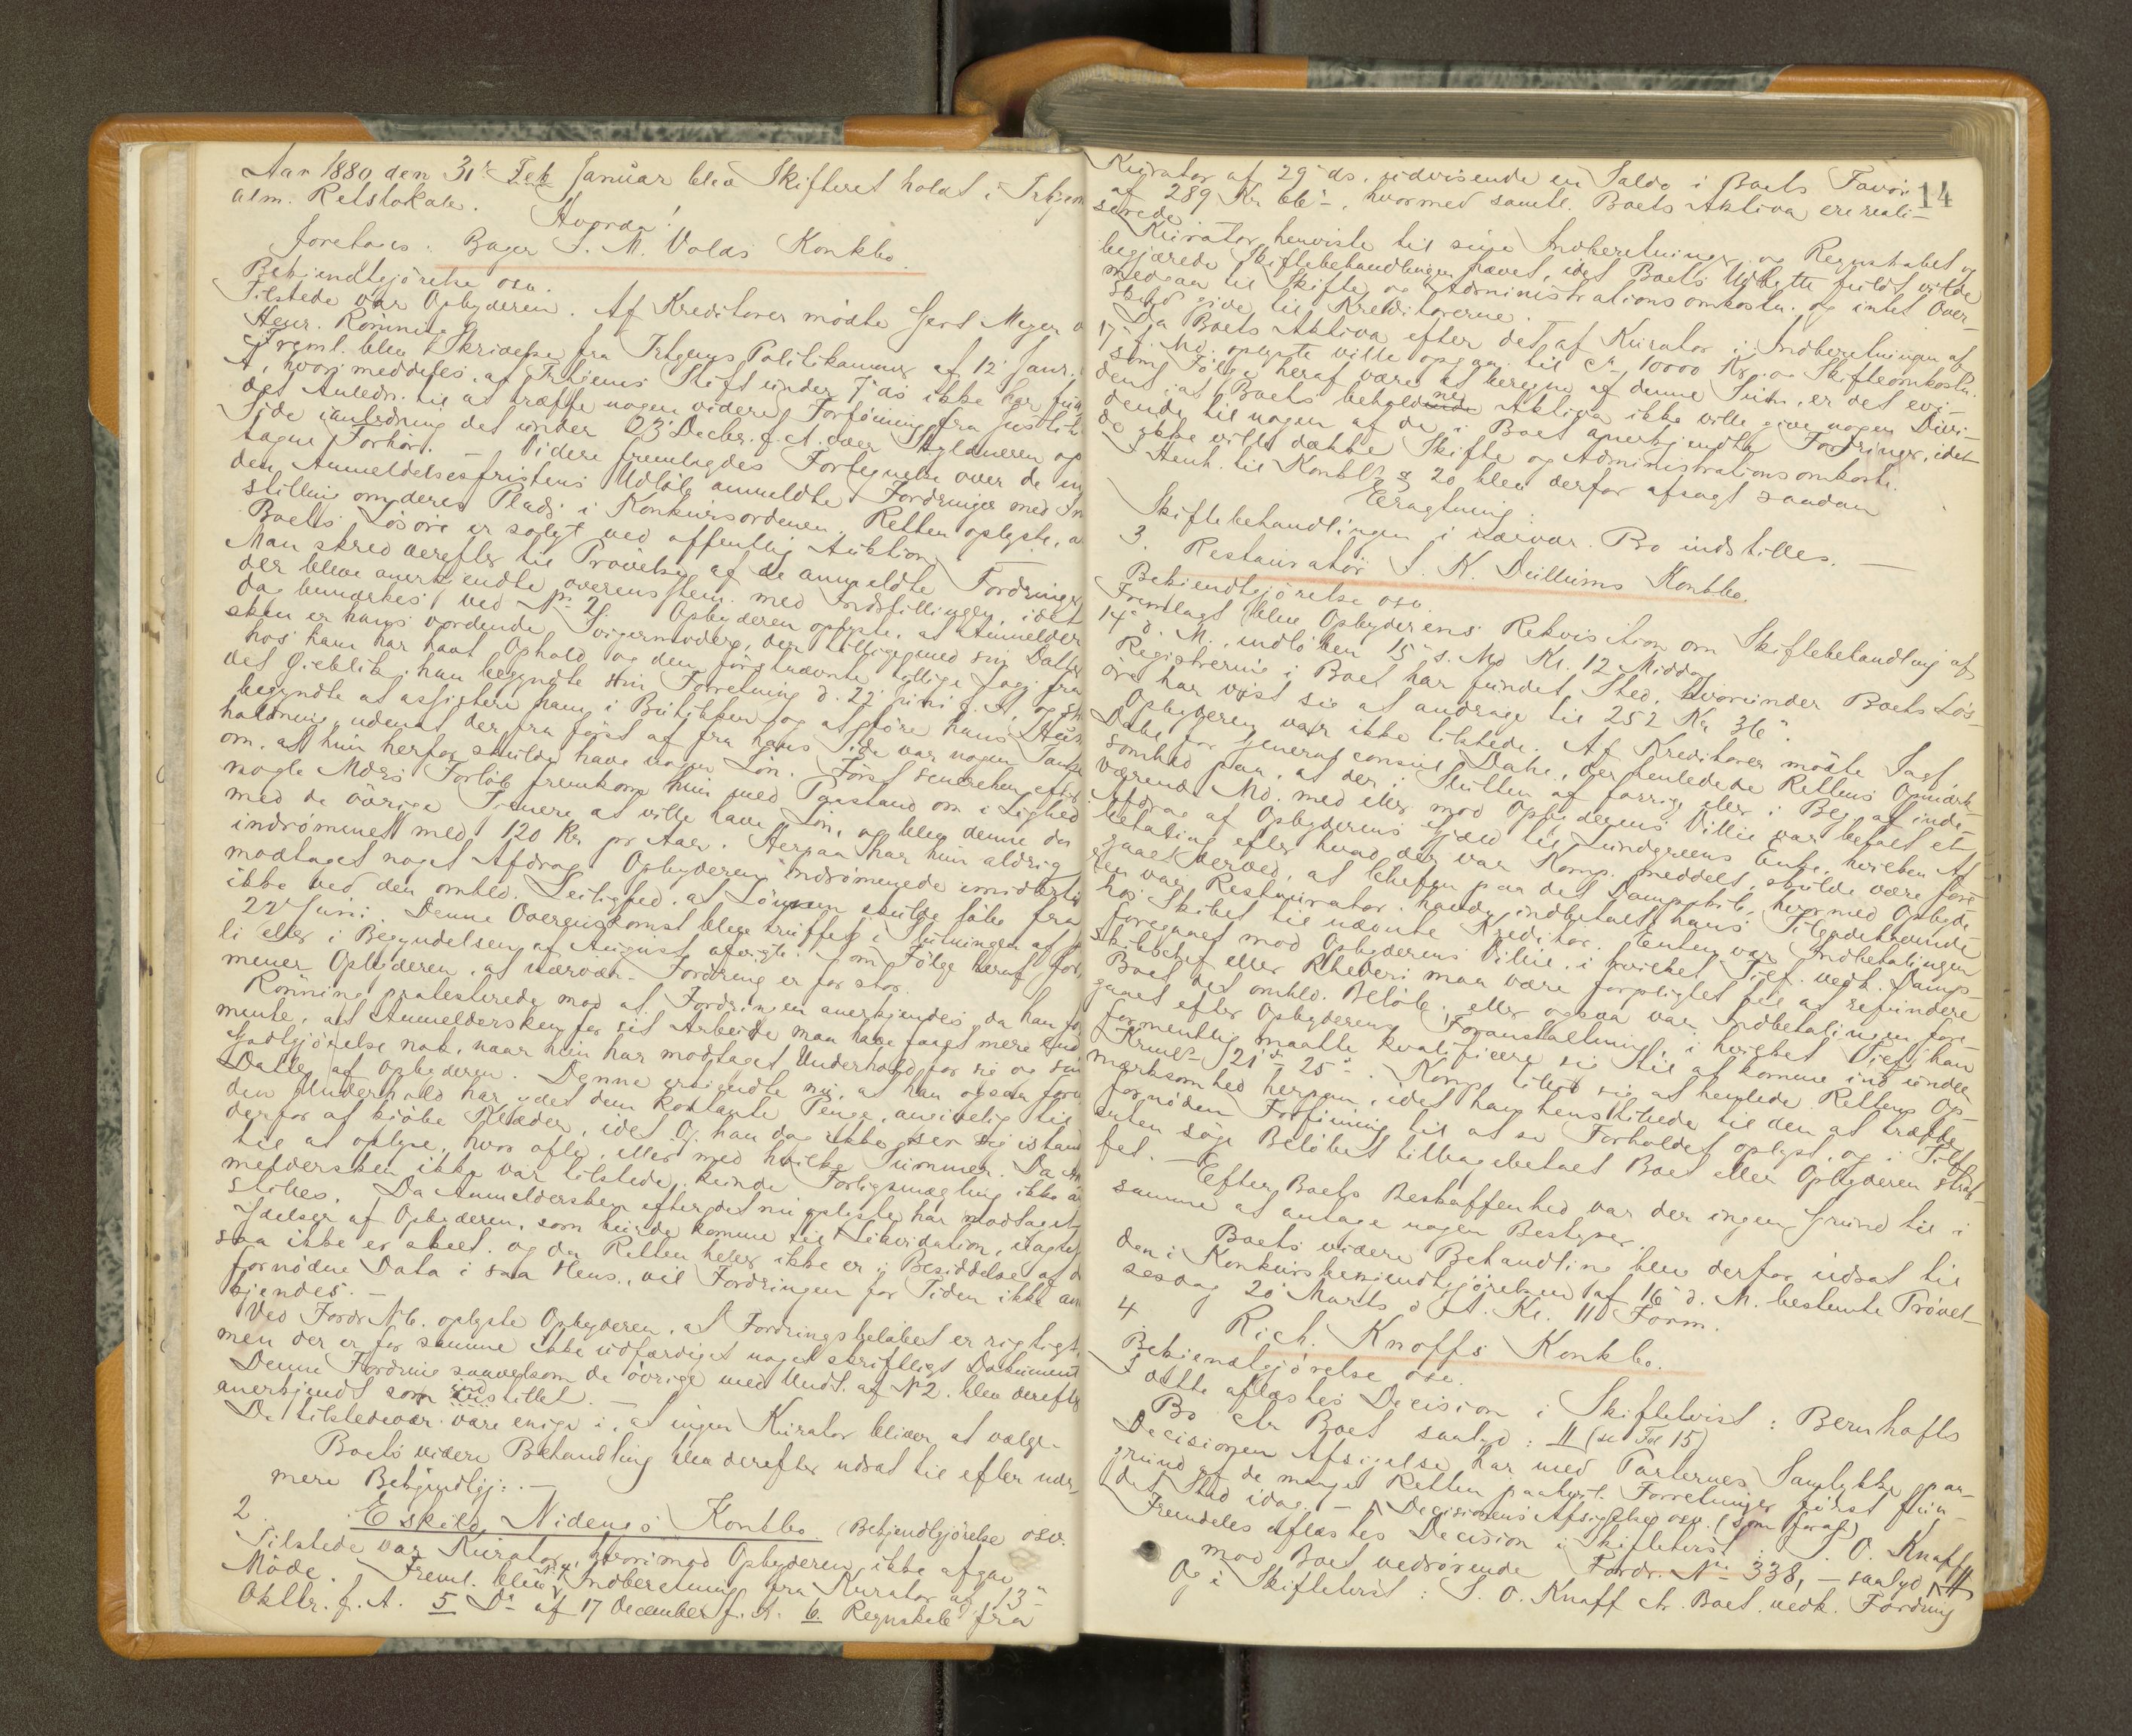 Aar 1880 den 31te Feb Januar blev Skifteret holdt i Trhjem
alm. Retslokale.
Hvorda!
foretages: Bager S. M. Volds Konkbo.
Bekjendtgjörelse osv.
Tilstede var Opbyderen. Af Kreditorer mödte Gert Meyer o
Henr. Rönning
Freml. blev Skrivelse fra Trhjems Politikammer af 12 Janr.
A, hvori meddeles, at Trhjems Stift under 7de ds ikke har fun
det Anledn. til at træffe nogen videre Forföining fra Justits
Side ianledning det under 23 Decbr. f. A. over Skyldneren op
tagne Forhör. – Videre fremlagdes Fortegnelse over de in
den Anmeldelsesfristens Udlöb anmeldte Fordringer med In
stilling om deres Plads i Konkursordenen. Retten oplyste, a
Boets Lösöre er solgt ved offentlig Auktion. –
Man skred derefter til Prövelse af de anmeldte Fordringer
der bleve anerkjendte overensstem. med Indstillingen, idet
dog bemærkes ved No 2. Opbyderen oplyste, at Anmelder
sken er hans vordende Svigermoder, der tilligemed sin Datter
hos ham har havt Ophold og den förstnævnte tillige Lagj. fra
det Öieblik, han begyndte sin Forretning d. 22 juni f. A, og sk
begyndte at assistere ham i Butikken og at gjöre hans Hus
holdning, udenat der fra först af fra hans Side var nogen Tanke
om, at hun herfor skulde have nogen Lön. Först senerehen efter
nogle Mdrs Forlöb fremkom hun med Paastand om i Lighed
med de övrige Tjenere at ville have Lön, og blev denne da
indrömmet med 120 Kr pr Aar. Herpaa har hun aldrig
modtaget noget Afdrag. Opbyderen indrömmede imidlertid
ikke ved den omhld. Leilighed, at Lönnen skulde löbe fra
22de Juni. Denne Overenskomst blev truffet i Slutningen af Ju
li eller i Begyndelsen af August afvigte. Som Fölge heraf for
mener Opbyderen, at nærvær. Fordring er for stor.
Rönning protesterede mod at Fordringen anerkjendes, da han for
mente, at Anmeldersken for sit Arbeide maa have faaet mere end
Godtgjörelse nok, naar hun har modtaget Underhold for sig og sin
Datter af Opbyderen. Denne erkjendte nu, at han ogsaa foru
den Underhold har ydet dem kontante Penge, angivelig til
derfor at kjöbe Klæder, idet Oj han dog ikke ser sig istand
til at oplyse, hvor ofte, eller med hvilke Summer. Da An
meldersken ikke var tilstede, kunde Forligsmægling ikke an
stilles. Da Anmeldersken efter det nu oplyste har modtaget
Ydelser af Opbyderen, som burde komme til Likvidation, uagtet
saa ikke er skeet, og da Retten heller ikke er i Besiddelse af d
fornödne Data i saa Hens., vil Fordringen for Tiden ikke an
kjendes. –
Ved Fordr No 6. oplyste Opbyderen, at Fordringsbelöbet er rigtigt,
men der er for samme ikke udfærdiget noget skriftligt Dokument
Denne Fordring saavelsom de övrige med Undt. af No 2. blev derefter
anerkjendt som indstillet. –
De tilstedevær. vare enige i, at ingen Kurator bliver at vælge.
Boets videre Behandling blev derefter udsat til efter nær-
mere Bekjendtgj: . –
2. Eskild Nidengs Konkbo. (Bekjendtgjörelse osv.
Tilstede var Kurator, hvorimod Opbyderen ikke afgav
Möde. Freml. blev No 4 Indberetning fra Kurator af 13de
Oktbr. f. A. 5 Do af 17 December f. A. 6. Regnskab fra
14
Kurator af 29de ds. udvisende en Saldo i Boets Favör
af 289 Kr 66 ö, hvormed samtl. Boets Aktiva ere reali-
serede.
Kurator henviste til sine Indberetninger og Regnskabet og
begjærede Skiftebehandlingen hævet, idet Boets Udbytte fuldt vilde
medgaa til Skifte og Administrationsomkostn. og intet Over-
skud give til Kreditorerne.
Da Boets Aktiva efter det af Kurator i Indberetningen af
17de f. Md. oplyste ville opgaa til ca 10000 Kr. og Skifteomkostn.
som Fölge heraf være at beregne af denne Sum, er det evi-
dent, at Boets beholdne Aktiva ikke ville give nogen Divi-
dende til nogen af de i Boet anerkjendte Fordringer, idet
de ikke ville dække Skifte og Administrationsomkostn.
I Henh. til Konkl § 20 blev derfor afsagt saadan
Eragtning:
Skiftebehandlingen i nærvær. Bo indstilles. –
3. Restauratör S. K. Duillums Konkbo.
Bekjendtgjörelse osv.
Fremlagt blev Opbyderens Rekvisition om Skiftebehandling af
14de d. M. indlöben 15de s. Md Kl. 12 Middag.
Registrering i Boet har fundet Sted, hvorunder Boets Lös-
öre har vist sig at andrage til 252 Kr 36 ö.
Opbyderen var ikke tilstede. Af Kreditorer mödte Sagf.
Dahl for Generalconsul Dahl, der henledede Rettens Opmærk-
somhed paa, at der i Slutten af forrige eller i Beg. af inde-
værende Md. med eller mod Opbyderens Villie var betalt et
Afdrag af Opbyderens Gjæld til Lundgreens Enke, hvilken Af
betaling efter hvad der var Komp. meddelt, skulde være fore-
gaaet derved, at Chefen paa det Dampskib, hvormed Opbyde-
ren var Restaurator, havde indbetalt hans Tilgodehavende
hos Skibet til nævnte Kreditor. Enten var Indbetalingen
foregaaet mod Opbyderens Villie, i hvilket Tilf. vedk. Damp-
skibschef eller Rhederi maa være forpligtet til at refundere
Boet det omhld. Belöb, eller ogsaa var Indbetalingen fore-
gaaet efter Opbyderens Foranstaltning, i hvilket Tilf. han
formentlig maatte kvalificere sig til at komme ind under
Kriml. 21de – 25 §. Komp. tillod sig at henlede Rettens Op-
mærksomhed herpaa, idet han henstillede til den at træffe
fornöden Forföining til at se Forholdet oplyst, og i Tilf
enten söge Belöbet tilbagebetalt Boet eller Opbyderen straf-
fet. –
Efter Boets Beskaffenhed var der ingen Grund til i
samme at antage nogen Bestyrer.
Boets videre Behandling blev derfor udsat til
den i Konkursbekjendtgjörelsen af 16de d. M. bestemte Prövel-
sesdag 20 Marts d. A. Kl. 11 Form.
4. Rich. Knoffs Konkbo.
Bekjendtgjörelse osv.
I dette aflæstes Decision i Skiftetvist: Bernhafts
Bo ctr Boet saalyd: II (se Fol 15)
Decisionen Afsigelse har med Parternes Samtykke paa
grund af de mange Retten paahvil. Forretninger först fun-
det Sted idag. – Decisionens Afsigelse osv. (som foran)
Fremdeles aflæstes Decision i Skiftetvist: S. O. Knoff
mod Boet vedrörende Fordr. No 338, – saalyd. II
Og i Skiftetvist: S. O. Knoff ctr. Boet vedk. Fordring